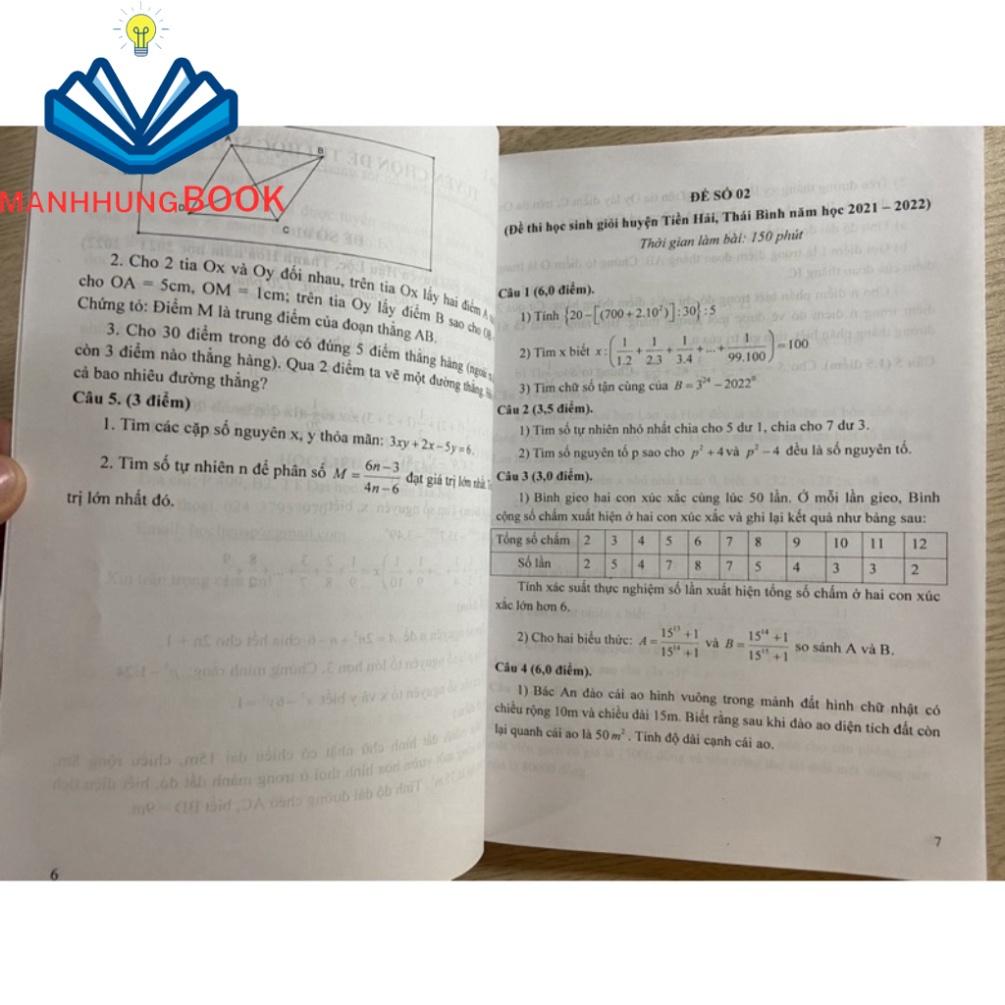 MANHHUNGBOOK
B
C
2. Cho 2 tia Ox và Oy đối nhau, trên tia Ox lấy hai điểm A
cho OA = 5cm, OM = 1cm; trên tia Oy lấy điểm B sao cho
Chứng tỏ: Điểm M là trung điểm của đoạn thẳng AB.
3. Cho 30 điểm trong đó có đúng 5 điểm thẳng hàng (ngoài
còn 3 điểm nào thẳng hàng). Qua 2 điểm ta vẽ một đường thẳng.
cả bao nhiêu đường thẳng?
Câu 5. (3 điểm)
1. Tìm các cặp số nguyên x, y thỏa mãn: 3xy + 2x − 5y = 6.
2. Tìm số tự nhiên n để phân số M = (6n−3)/(4n−6) đạt giá trị lớn nhất.
trị lớn nhất đó.
6
ĐỀ SỐ 02
(Đề thi học sinh giỏi huyện Tiền Hải, Thái Bình năm học 2021 – 2022)
Thời gian làm bài: 150 phút
Câu 1 (6,0 điểm).
1) Tính {20−[(700+2.10²)]:30}:5
2) Tìm x biết x:(1/1.2+1/2.3+1/3.4+...+1/99.100)=100
3) Tìm chữ số tận cùng của B = 3²⁴ − 2022⁰
Câu 2 (3,5 điểm).
1) Tìm số tự nhiên nhỏ nhất chia cho 5 dư 1, chia cho 7 dư 3.
2) Tìm số nguyên tố p sao cho p² + 4 và p² − 4 đều là số nguyên tố.
Câu 3 (3,0 điểm).
1) Bình gieo hai con xúc xắc cùng lúc 50 lần. Ở mỗi lần gieo, Bình
cộng số chấm xuất hiện ở hai con xúc xắc và ghi lại kết quả như bảng sau:
Tổng số chấm 2 3 4 5 6 7 8 9 10 11 12
Số lần 2 5 4 7 8 7 5 4 3 3 2
Tính xác suất thực nghiệm số lần xuất hiện tổng số chấm ở hai con xúc
xắc lớn hơn 6.
2) Cho hai biểu thức: A = (15¹³+1)/(15¹⁴+1) và B = (15¹⁴+1)/(15¹⁵+1) so sánh A và B.
Câu 4 (6,0 điểm).
1) Bác An đào cái ao hình vuông trong mảnh đất hình chữ nhật có
chiều rộng 10m và chiều dài 15m. Biết rằng sau khi đào ao diện tích đất còn
lại quanh cái ao là 50m². Tính độ dài cạnh cái ao.
7